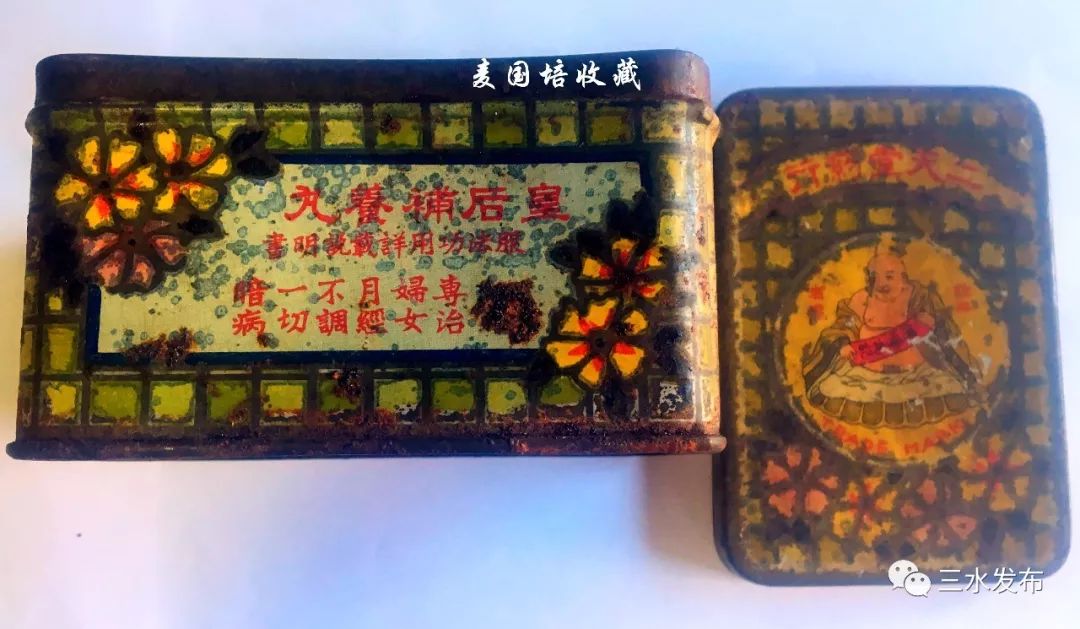 麦国培收藏
皇后補養丸
服法功用詳載説明書
專治
婦女
月經
不調
一切
暗病
二天堂藥行
TRADE MARK
三水发布